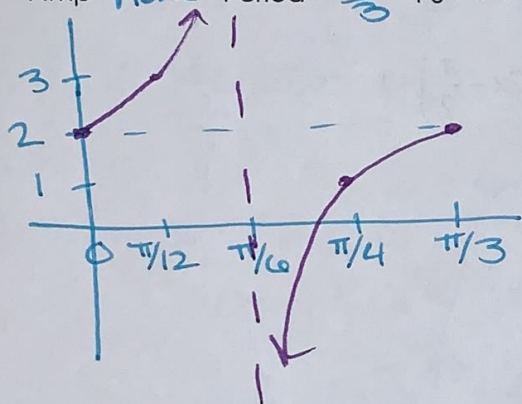 3
3
2
1
0 π/12 π/6 π/4 π/3